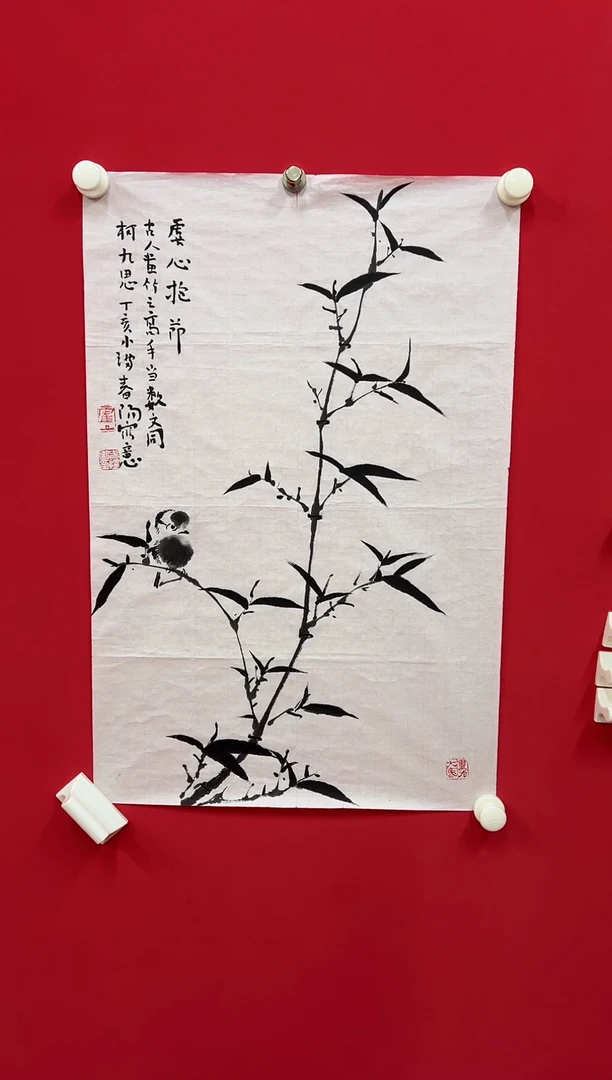 虚心抱节
古人画竹之高手当数文同
柯九思丁亥小阳春阳写意